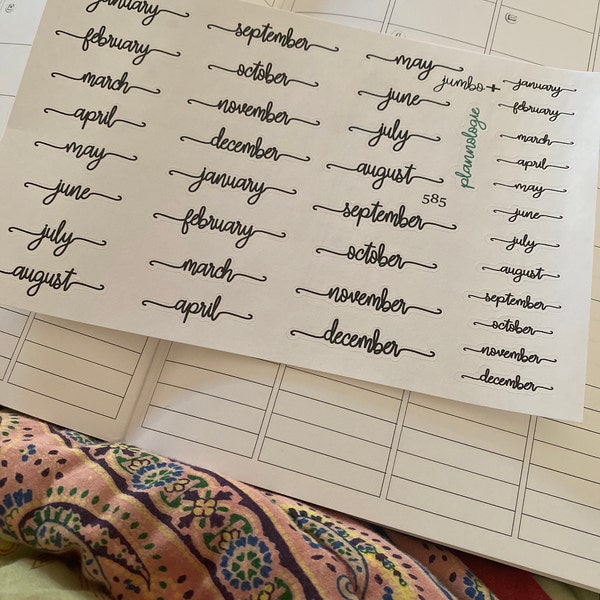 january
february
march
april
may
june
july
august
september
october
november
december
january
february
march
april
may
june
july
august
september
october
november
december
jumbo+
plannologie
585
january
february
march
april
may
june
july
august
september
october
november
december